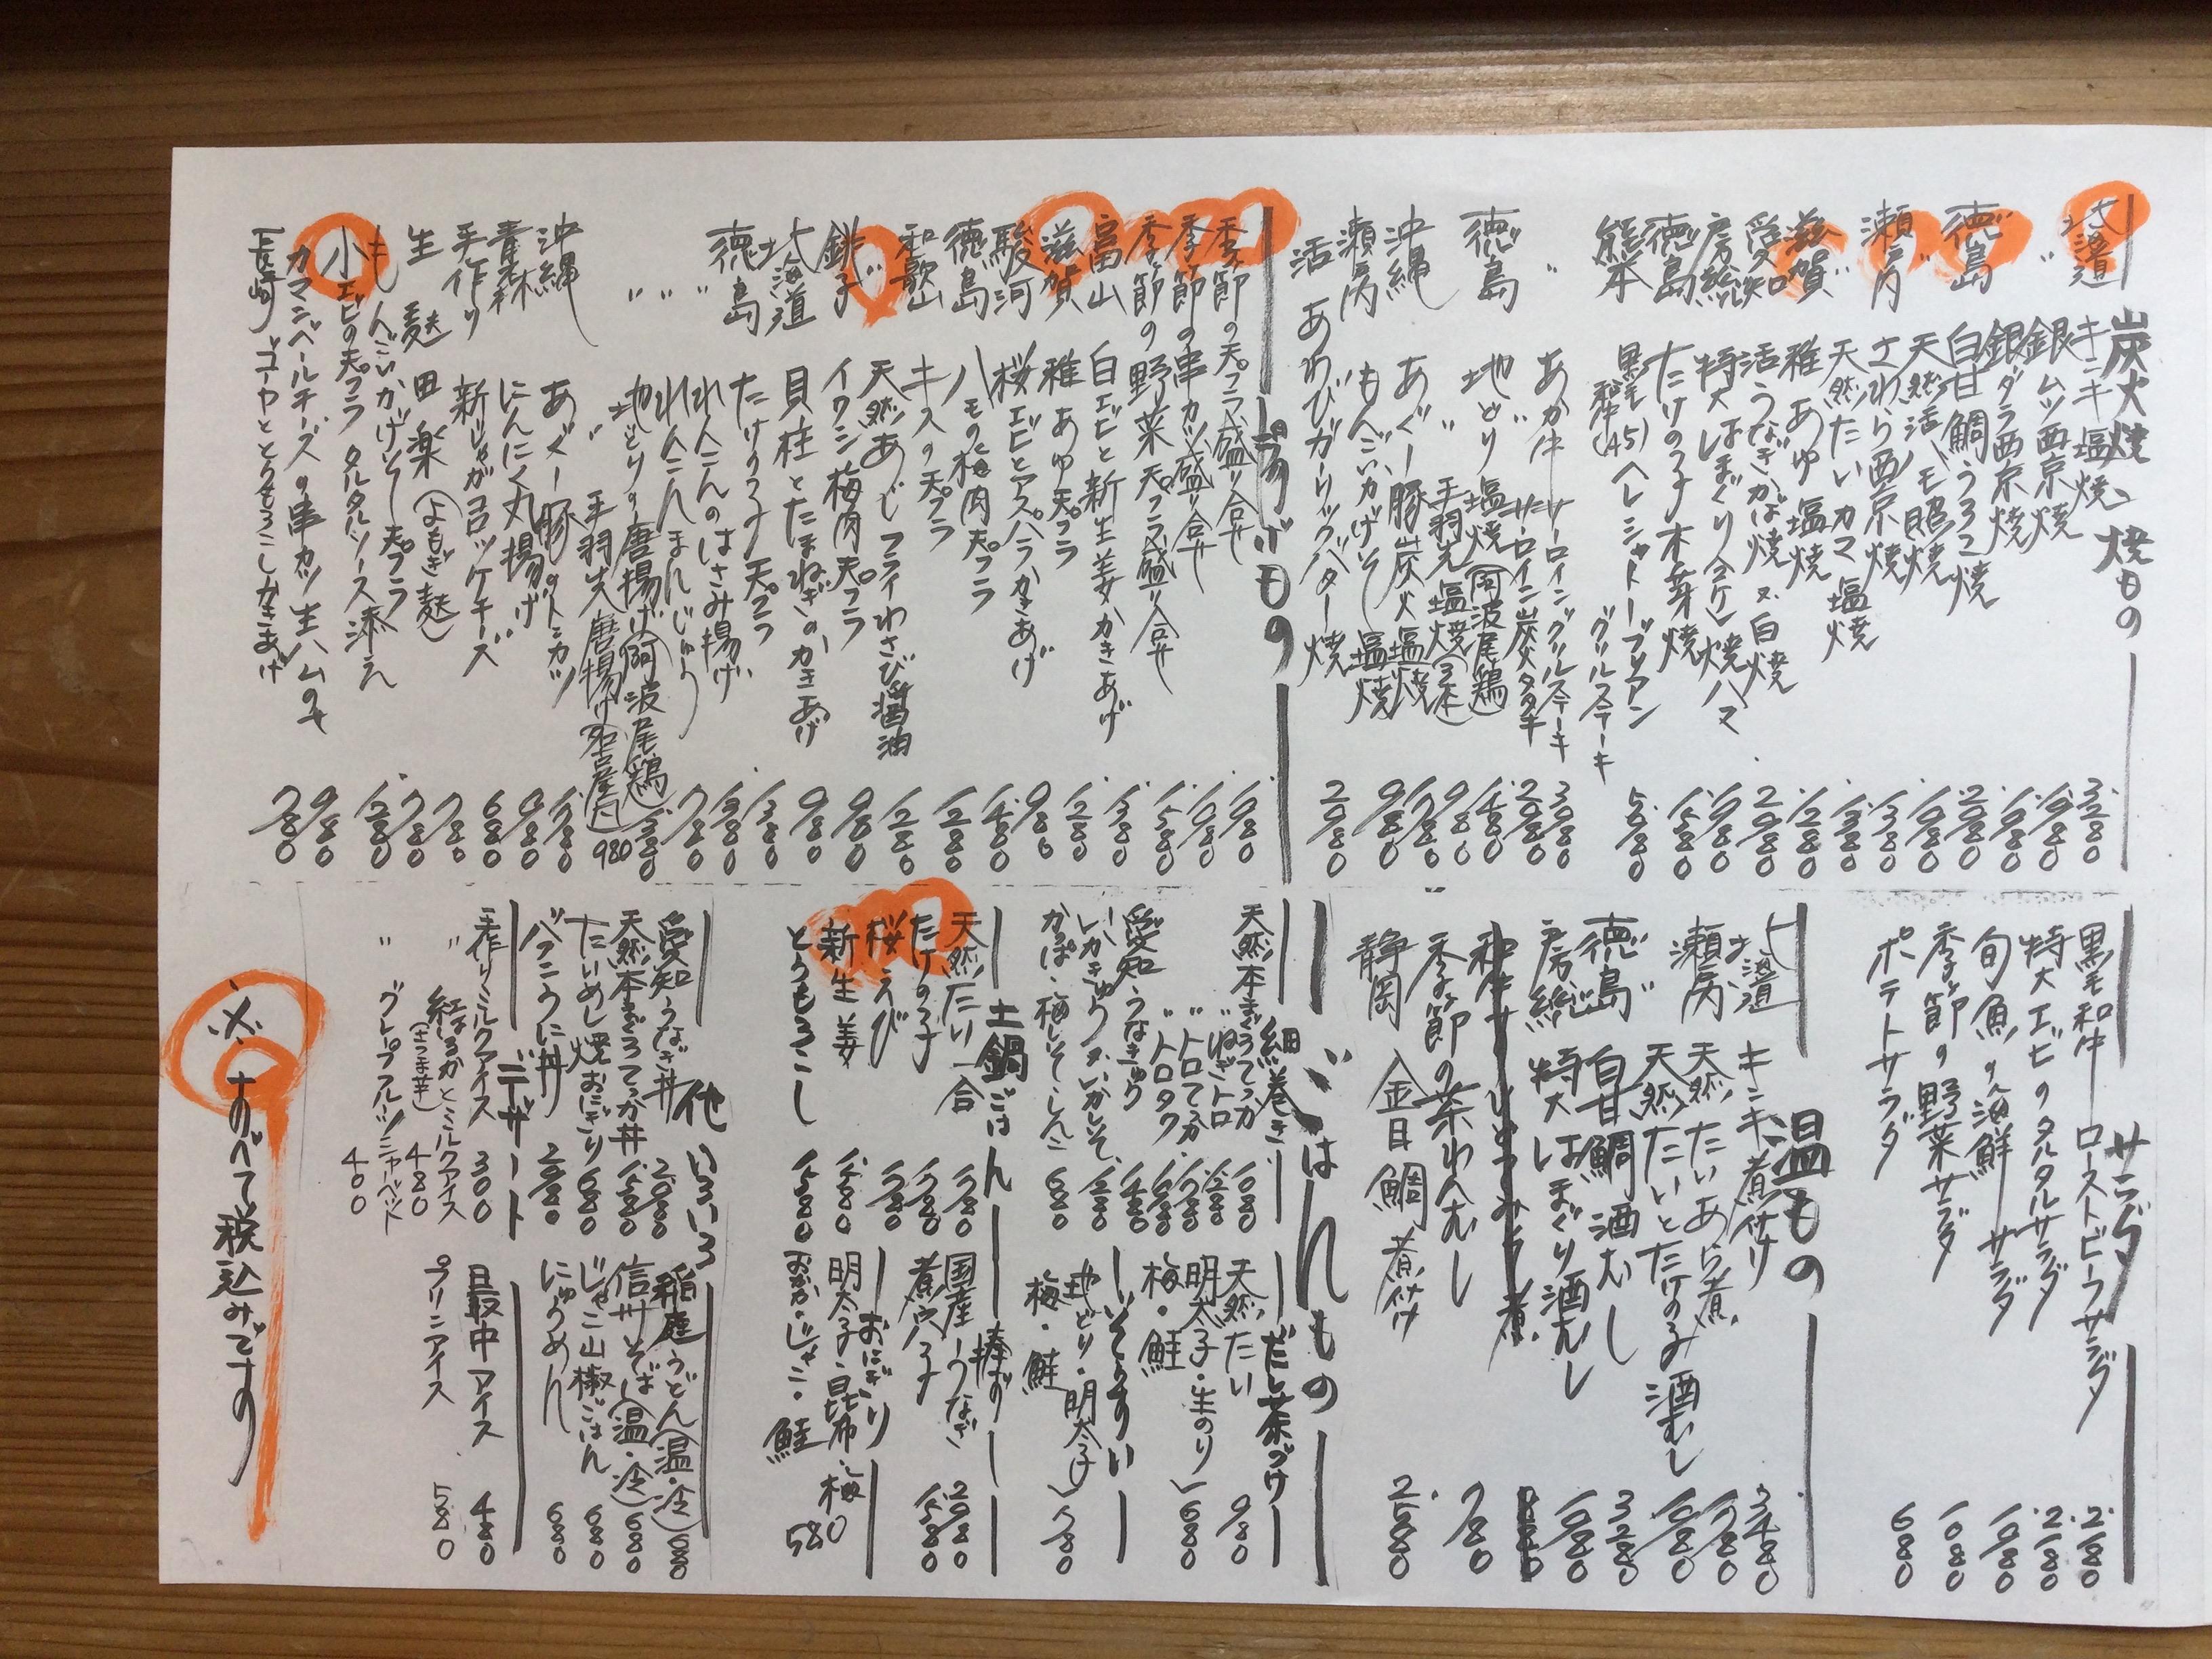 炭火焼、焼もの
北海道 キンキ塩焼 3.280
〃 銀ムツ西京焼 1.980
銀ダラ西京焼 1.980
徳島 白甘鯛うろこ焼 2.980
〃 天然活ハモ照焼 1.980
瀬戸内 さわら西京焼 1.380
〃 天然たいカマ塩焼 1.380
滋賀 稚あゆ塩焼 1.280
愛知 活うなぎかば焼 又 白焼 2.980
房総 特大はまぐり(2ケ)焼ハマ 1.980
徳島 たけのこ木の芽焼 1.580
熊本 黒毛和牛(A5)ヘレシャトーブリアン グリルステーキ 5.980
〃 あか牛サーロイングリルステーキ 3.080
サーロイン炭火タタキ 2.980
徳島 地どり塩焼(阿波尾鶏) 1.480
〃 手羽先塩焼(3本) 980
沖縄 あぐー豚炭火塩焼 1.780
瀬戸内 もんごいかげそ塩焼 980
活あわびガーリックバター焼 2.980
揚げもの
季節の天プラ盛り合せ 1.980
季節の串カツ盛り合せ 1.080
季節の野菜天プラ盛り合せ 1.580
富山 白エビと新生姜かきあげ 1.380
滋賀 稚あゆ天プラ 1.280
駿河 桜エビとアスパラかきあげ 980
徳島 ハモの梅肉天プラ 1.480
和歌山 キスの天プラ 1.280
〃 天然あじフライわさび醤油 1.280
銚子 イワシ梅肉天プラ 980
北海道 貝柱とたまねぎのかきあげ 980
徳島 たけのこ天プラ 1.380
〃 れんこんのはさみ揚げ 1.380
〃 れんこんまんじゅう 780
〃 地どりの唐揚げ(阿波尾鶏) 1.380
〃 手羽先唐揚げ(名古屋風) 980
沖縄 あぐー豚のトンカツ 1.780
青森 にんにく丸揚げ 980
手作り 新じゃがコロッケチーズ 680
生麩田楽(よもぎ麩) 780
もんごいかげそ天プラ 780
小エビの天プラ タルタルソース添え 1.280
カマンベールチーズの串カツ生ハムのせ 980
長崎 ゴーヤととうもろこしかきあげ 780
サラダ
黒毛和牛ローストビーフサラダ 2.280
特大エビのタルタルサラダ 2.180
旬魚の海鮮サラダ 1.080
季節の野菜サラダ 1.080
ポテトサラダ 680
温もの
北海道 キンキ煮付け 3.480
瀬戸内 天然たいあら煮 1.780
天然たいとたけのこ酒むし 1.080
徳島 白甘鯛酒むし 3.280
房総 特大はまぐり酒むし 1.080
季節の茶わんむし 780
静岡 金目鯛煮付け 2.580
ごはんもの
細巻き
天然本まぐろてっか 1.080
〃 ねぎトロ 1.280
〃 トロてっか 1.780
〃 トロタク 1.680
愛知 うなきゅう 1.480
いかきゅう 又 いかしそ 1.280
かっぱ・梅しそ・しんこ 680
だし茶づけ
天然たい 980
明太子・生のり
梅・鮭 680
ぞうすい
地どり・明太子
梅・鮭 780
土鍋ごはん
天然たい 一合 1.780
たけのこ 1.780
桜えび 1.780
新生姜 1.580
とうもろこし 1.580
棒ずし
国産うなぎ 2.980
煮穴子 1.580
おにぎり
明太子・昆布・梅
おかか・じゃこ・鮭 580
他いろいろ
愛知うなぎ丼 2.980
天然本まぐろてっか丼 1.580
たいめし焼おにぎり 680
バフンうに丼 2.980
稲庭うどん(温・冷) 680
信州そば(温・冷) 680
じゃこ山椒ごはん 680
にゅうめん 680
デザート
手作りミルクアイス 300
〃 紅はるかとミルクアイス 480
(さつま芋)
〃 グレープフルーツシャーベット 400
最中アイス 480
プリンアイス 580
※すべて税込みです